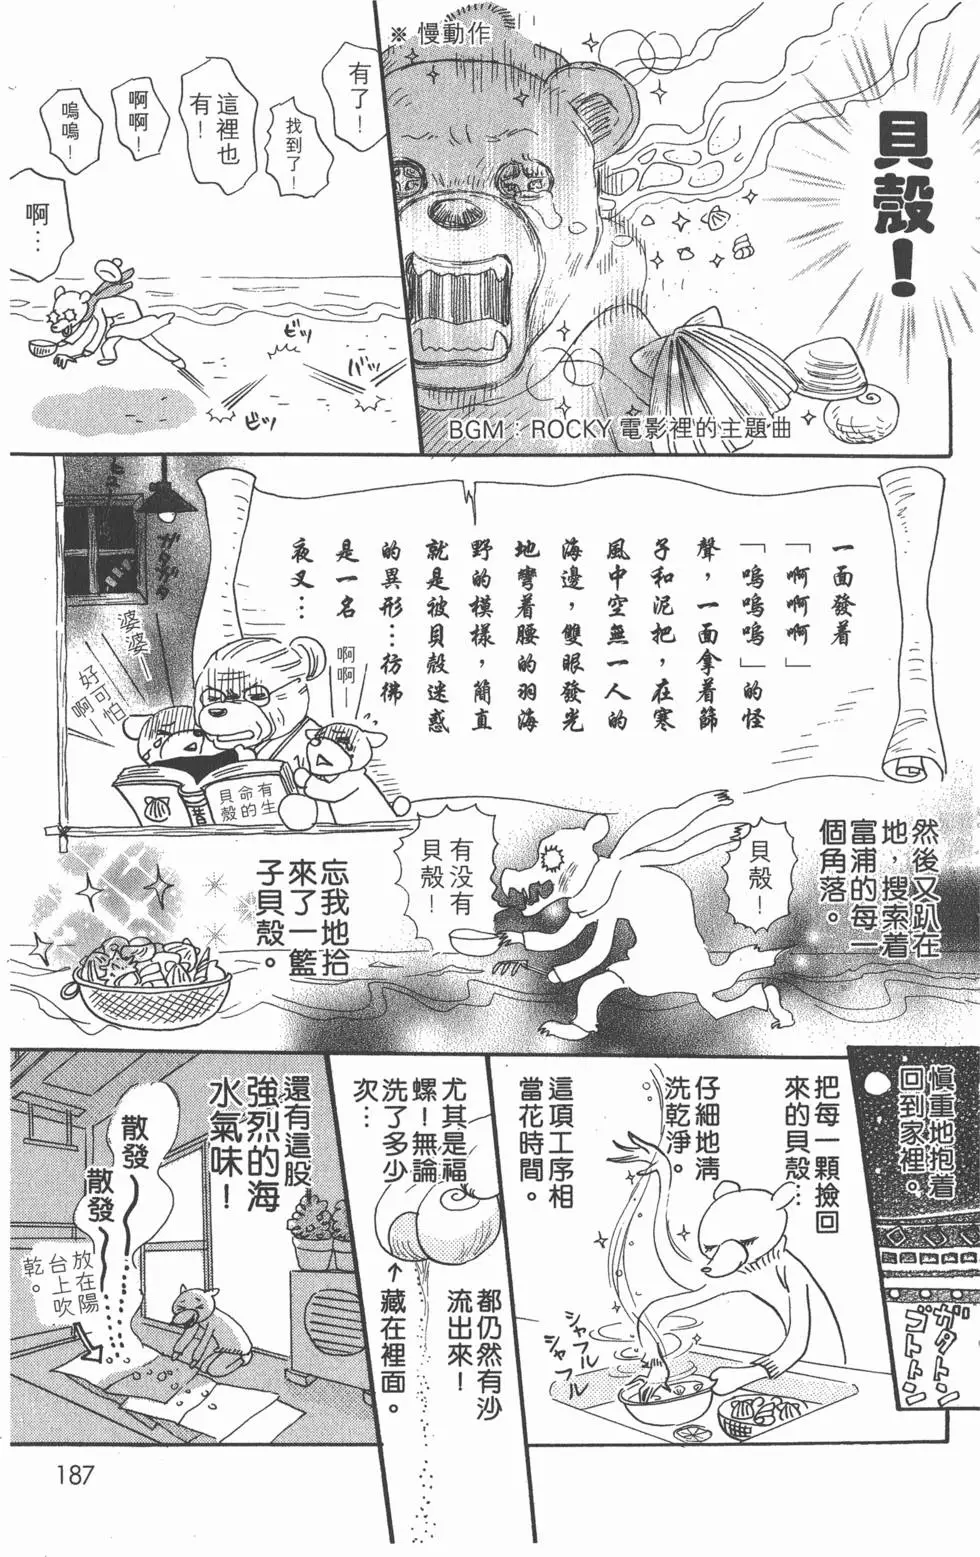 貝殼！
※ 慢動作
BGM：ROCKY 電影裡的主題曲
有了！
找到了！
這裡也
有！
啊啊！
嗚嗚！
啊…
ビッ
ビッ
ビッ
一面發着
「啊啊啊」
「嗚嗚嗚」的怪
聲，一面拿着篩
子和泥把，在寒
風中空無一人的
海邊，雙眼發光
地彎着腰的羽海
野的模樣，簡直
就是被貝殼迷惑
的異形…彷彿
是一名
夜叉…
ガタガタ
婆婆—
好可怕
啊—
啊啊—
有生
命的
貝殼
然後又趴在
地，搜索着
富浦的每一
個角落。
貝殼！
有没有
貝殼！
忘我地拾
來了一籃
子貝殼。
慎重地抱着
回到家裡。
ガタトン
ゴトトン
把每一顆撿回
來的貝殼…
仔細地清
洗乾淨。
這項工序相
當花時間。
シャフル
シャフル
尤其是福
螺！無論
洗了多少
次…
都仍然有沙
流出來！
←藏在裡面。
還有這股
強烈的海
水氣味！
散發
散發
放在陽
台上吹
乾。
187